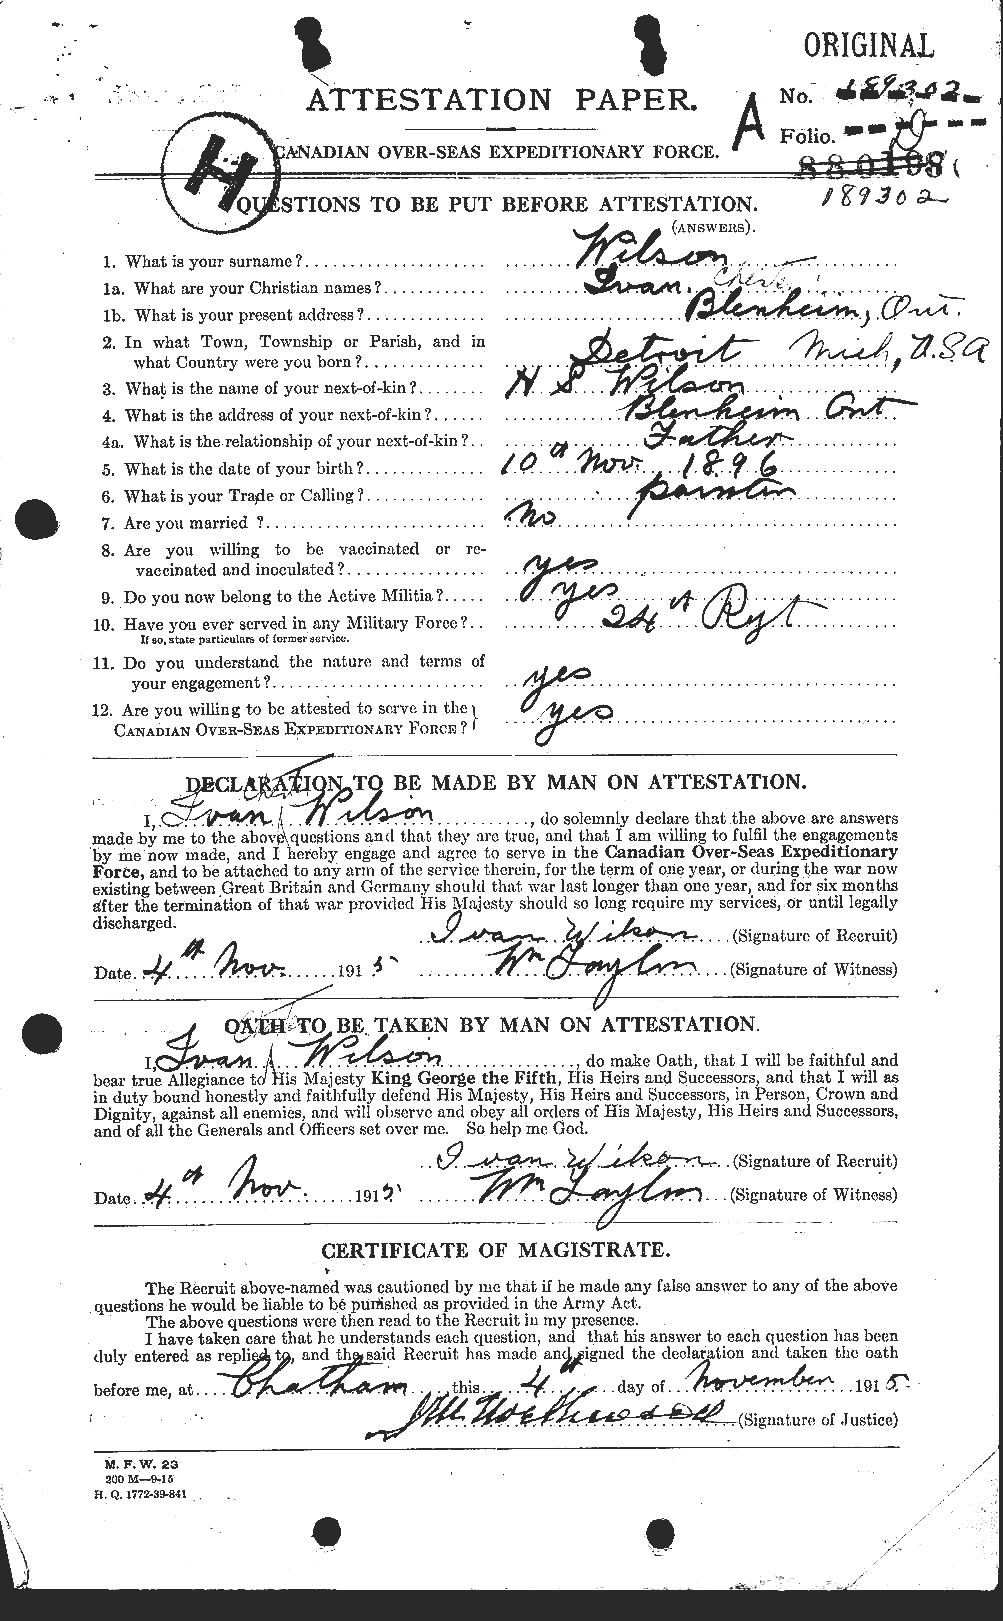 ORIGINAL
ATTESTATION PAPER.
No. 189302
A
Folio.
CANADIAN OVER-SEAS EXPEDITIONARY FORCE.
H
189302
QUESTIONS TO BE PUT BEFORE ATTESTATION.
(ANSWERS).
1. What is your surname? Wilson
1a. What are your Christian names? Ivan. Chester
1b. What is your present address? Blenheim, Ont.
2. In what Town, Township or Parish, and in
what Country were you born? Detroit Mich, U.S.A
3. What is the name of your next-of-kin? H S Wilson
4. What is the address of your next-of-kin? Blenheim Ont
4a. What is the relationship of your next-of-kin? Father
5. What is the date of your birth? 10th Nov. 1896
6. What is your Trade or Calling? painter
7. Are you married ? No
8. Are you willing to be vaccinated or re-
vaccinated and inoculated? yes
9. Do you now belong to the Active Militia? yes
10. Have you ever served in any Military Force? 24th Rgt
If so, state particulars of former service.
11. Do you understand the nature and terms of
your engagement? yes
12. Are you willing to be attested to serve in the
CANADIAN OVER-SEAS EXPEDITIONARY FORCE? yes
DECLARATION TO BE MADE BY MAN ON ATTESTATION.
I, Ivan Wilson, do solemnly declare that the above are answers
made by me to the above questions and that they are true, and that I am willing to fulfil the engagements
by me now made, and I hereby engage and agree to serve in the Canadian Over-Seas Expeditionary
Force, and to be attached to any arm of the service therein, for the term of one year, or during the war now
existing between Great Britain and Germany should that war last longer than one year, and for six months
after the termination of that war provided His Majesty should so long require my services, or until legally
discharged.
Ivan Wilson (Signature of Recruit)
Date. 4th Nov. 1915 Wm Taylor (Signature of Witness)
OATH TO BE TAKEN BY MAN ON ATTESTATION.
I, Ivan Wilson, do make Oath, that I will be faithful and
bear true Allegiance to His Majesty King George the Fifth, His Heirs and Successors, and that I will as
in duty bound honestly and faithfully defend His Majesty, His Heirs and Successors, in Person, Crown and
Dignity, against all enemies, and will observe and obey all orders of His Majesty, His Heirs and Successors,
and of all the Generals and Officers set over me. So help me God.
Ivan Wilson (Signature of Recruit)
Date. 4th Nov. 1915 Wm Taylor (Signature of Witness)
CERTIFICATE OF MAGISTRATE.
The Recruit above-named was cautioned by me that if he made any false answer to any of the above
questions he would be liable to be punished as provided in the Army Act.
The above questions were then read to the Recruit in my presence.
I have taken care that he understands each question, and that his answer to each question has been
duly entered as replied to, and the said Recruit has made and signed the declaration and taken the oath
before me, at Chatham this 4th day of November 1915
(Signature of Justice)
M. F. W. 23
200 M—9-15
H. Q. 1772-39-841